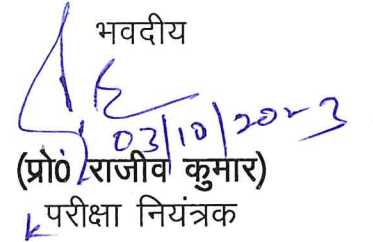 भवदीय
03/10/2023
(प्रो0 राजीव कुमार)
परीक्षा नियंत्रक